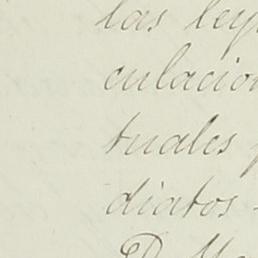 las ley
culacion
tuales
diatos